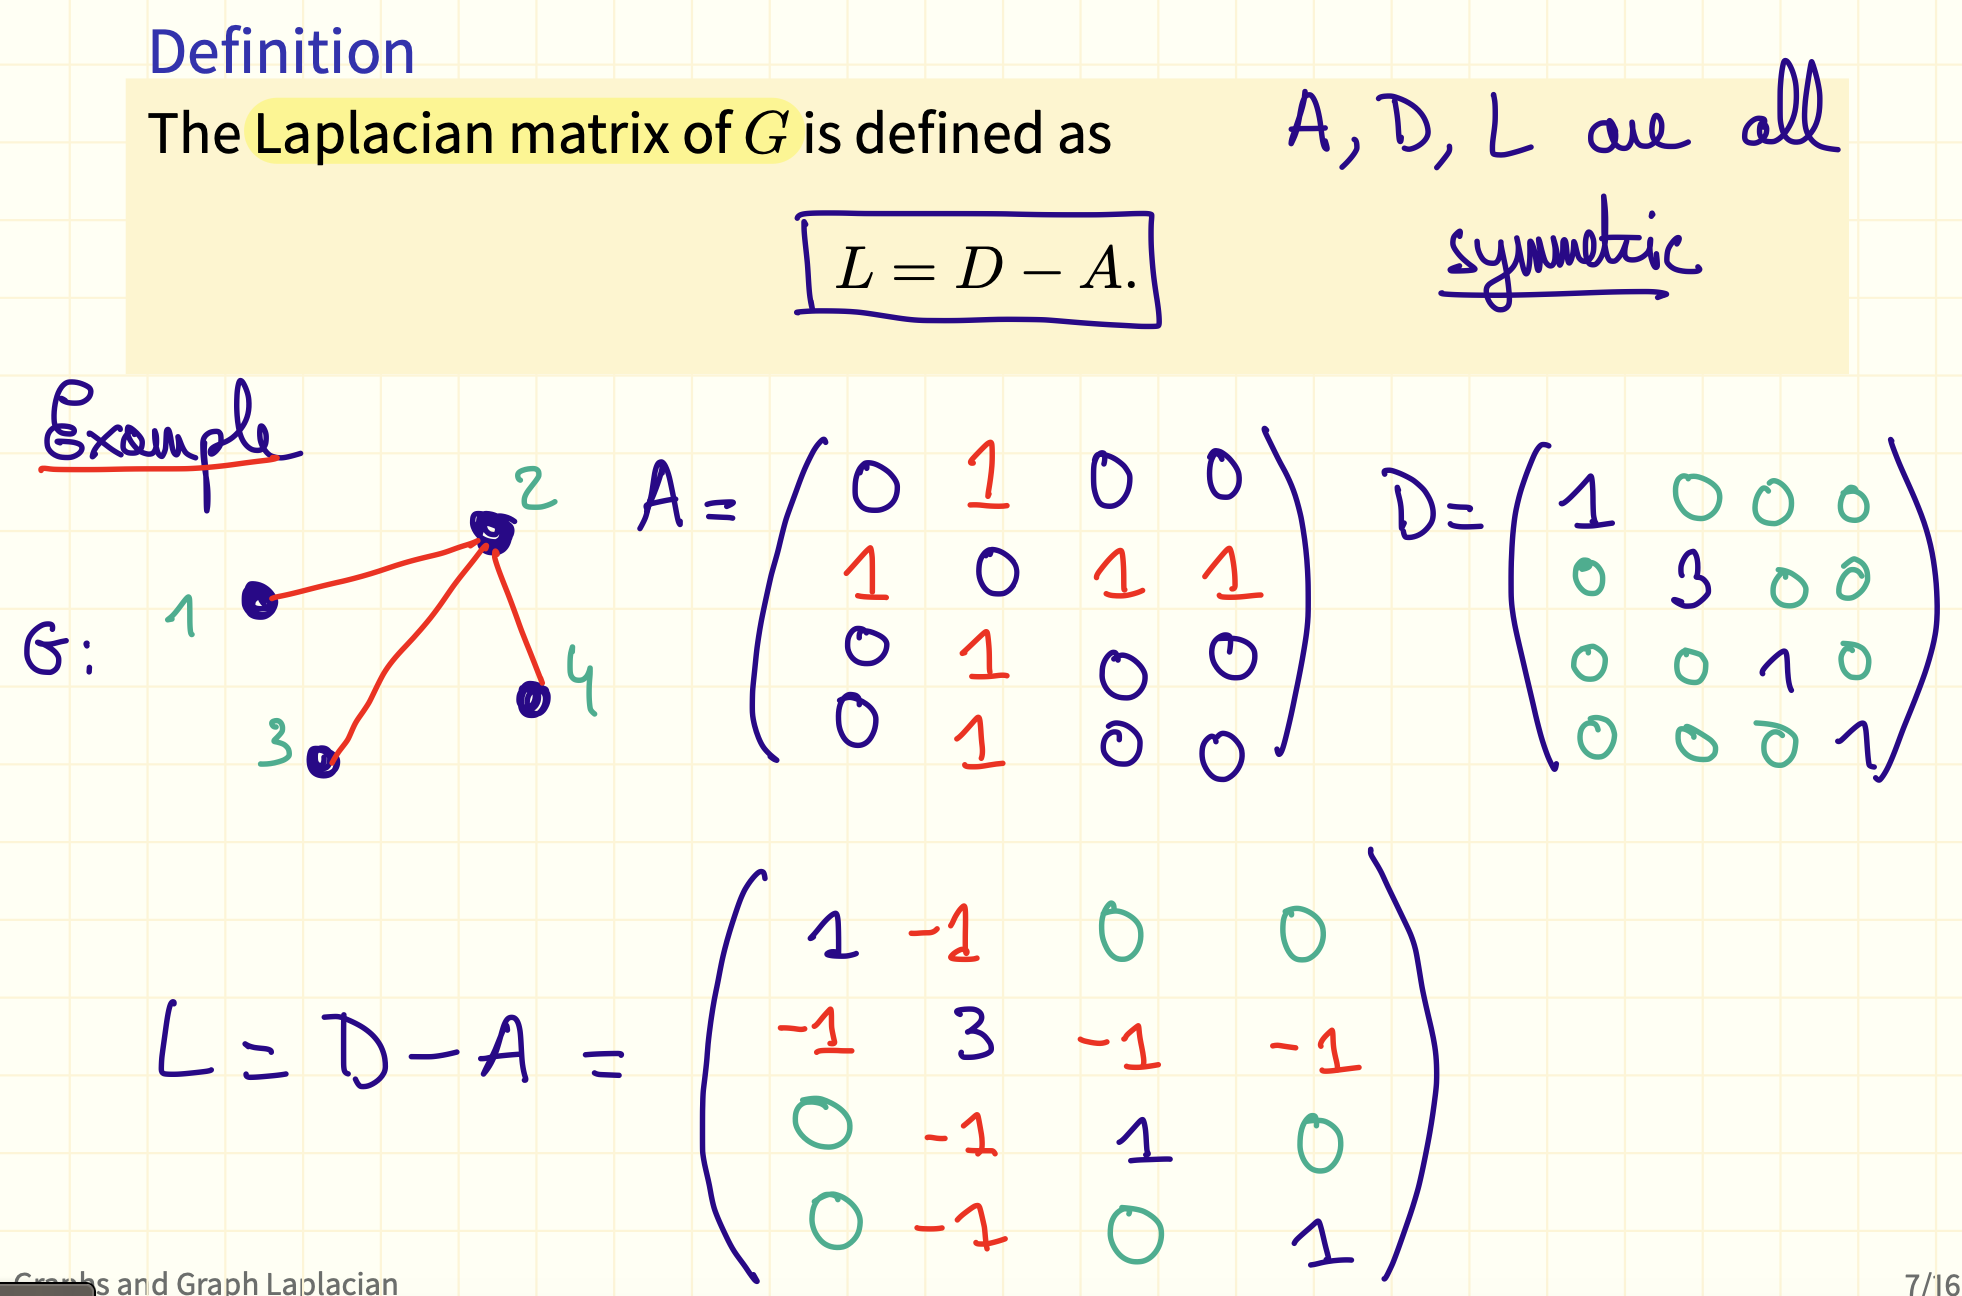 Definition
The Laplacian matrix of G is defined as
A, D, L are all
symmetric
L = D − A.
Example
G:
1
2
3
4
A =
0 1 0 0
1 0 1 1
0 1 0 0
0 1 0 0
D =
1 0 0 0
0 3 0 0
0 0 1 0
0 0 0 1
L = D - A =
1 -1 0 0
-1 3 -1 -1
0 -1 1 0
0 -1 0 1
Graphs and Graph Laplacian
7/16